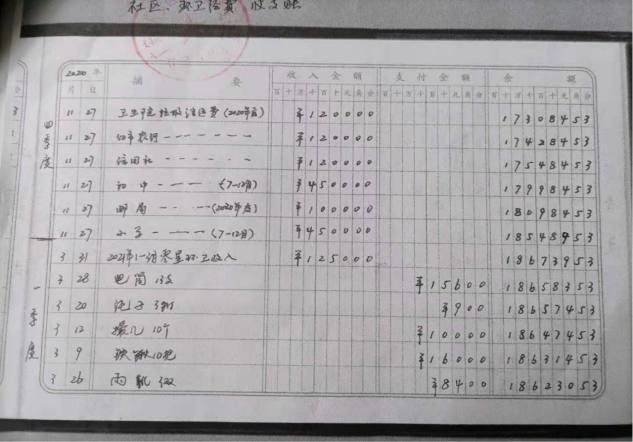 社区、环卫经费 收支账
2020年 摘 要 收入金额 支付金额 余 额
月 日 百十万千百十元角分 百十万千百十元角分 百十万千百十元角分
四季度
11 27 卫生院垃圾清运费(2020年度) ¥120000 17308453
11 27 ¥120000 17428453
11 27 信用社 ¥120000 17548453
11 27 初中 (7-12月) ¥450000 17998453
11 27 邮局 (2020年度) ¥100000 18098453
11 27 小学 (7-12月) ¥450000 18548453
一季度
3 31 2021年1-3月零星环卫收入 ¥125000 18673953
3 28 13支 ¥15600 18658353
3 20 绳子 ¥900 18657453
3 12 撮几 10个 ¥10000 18647453
3 9 铁锹10把 ¥16000 18631453
3 26 雨靴 3双 ¥8400 18623053